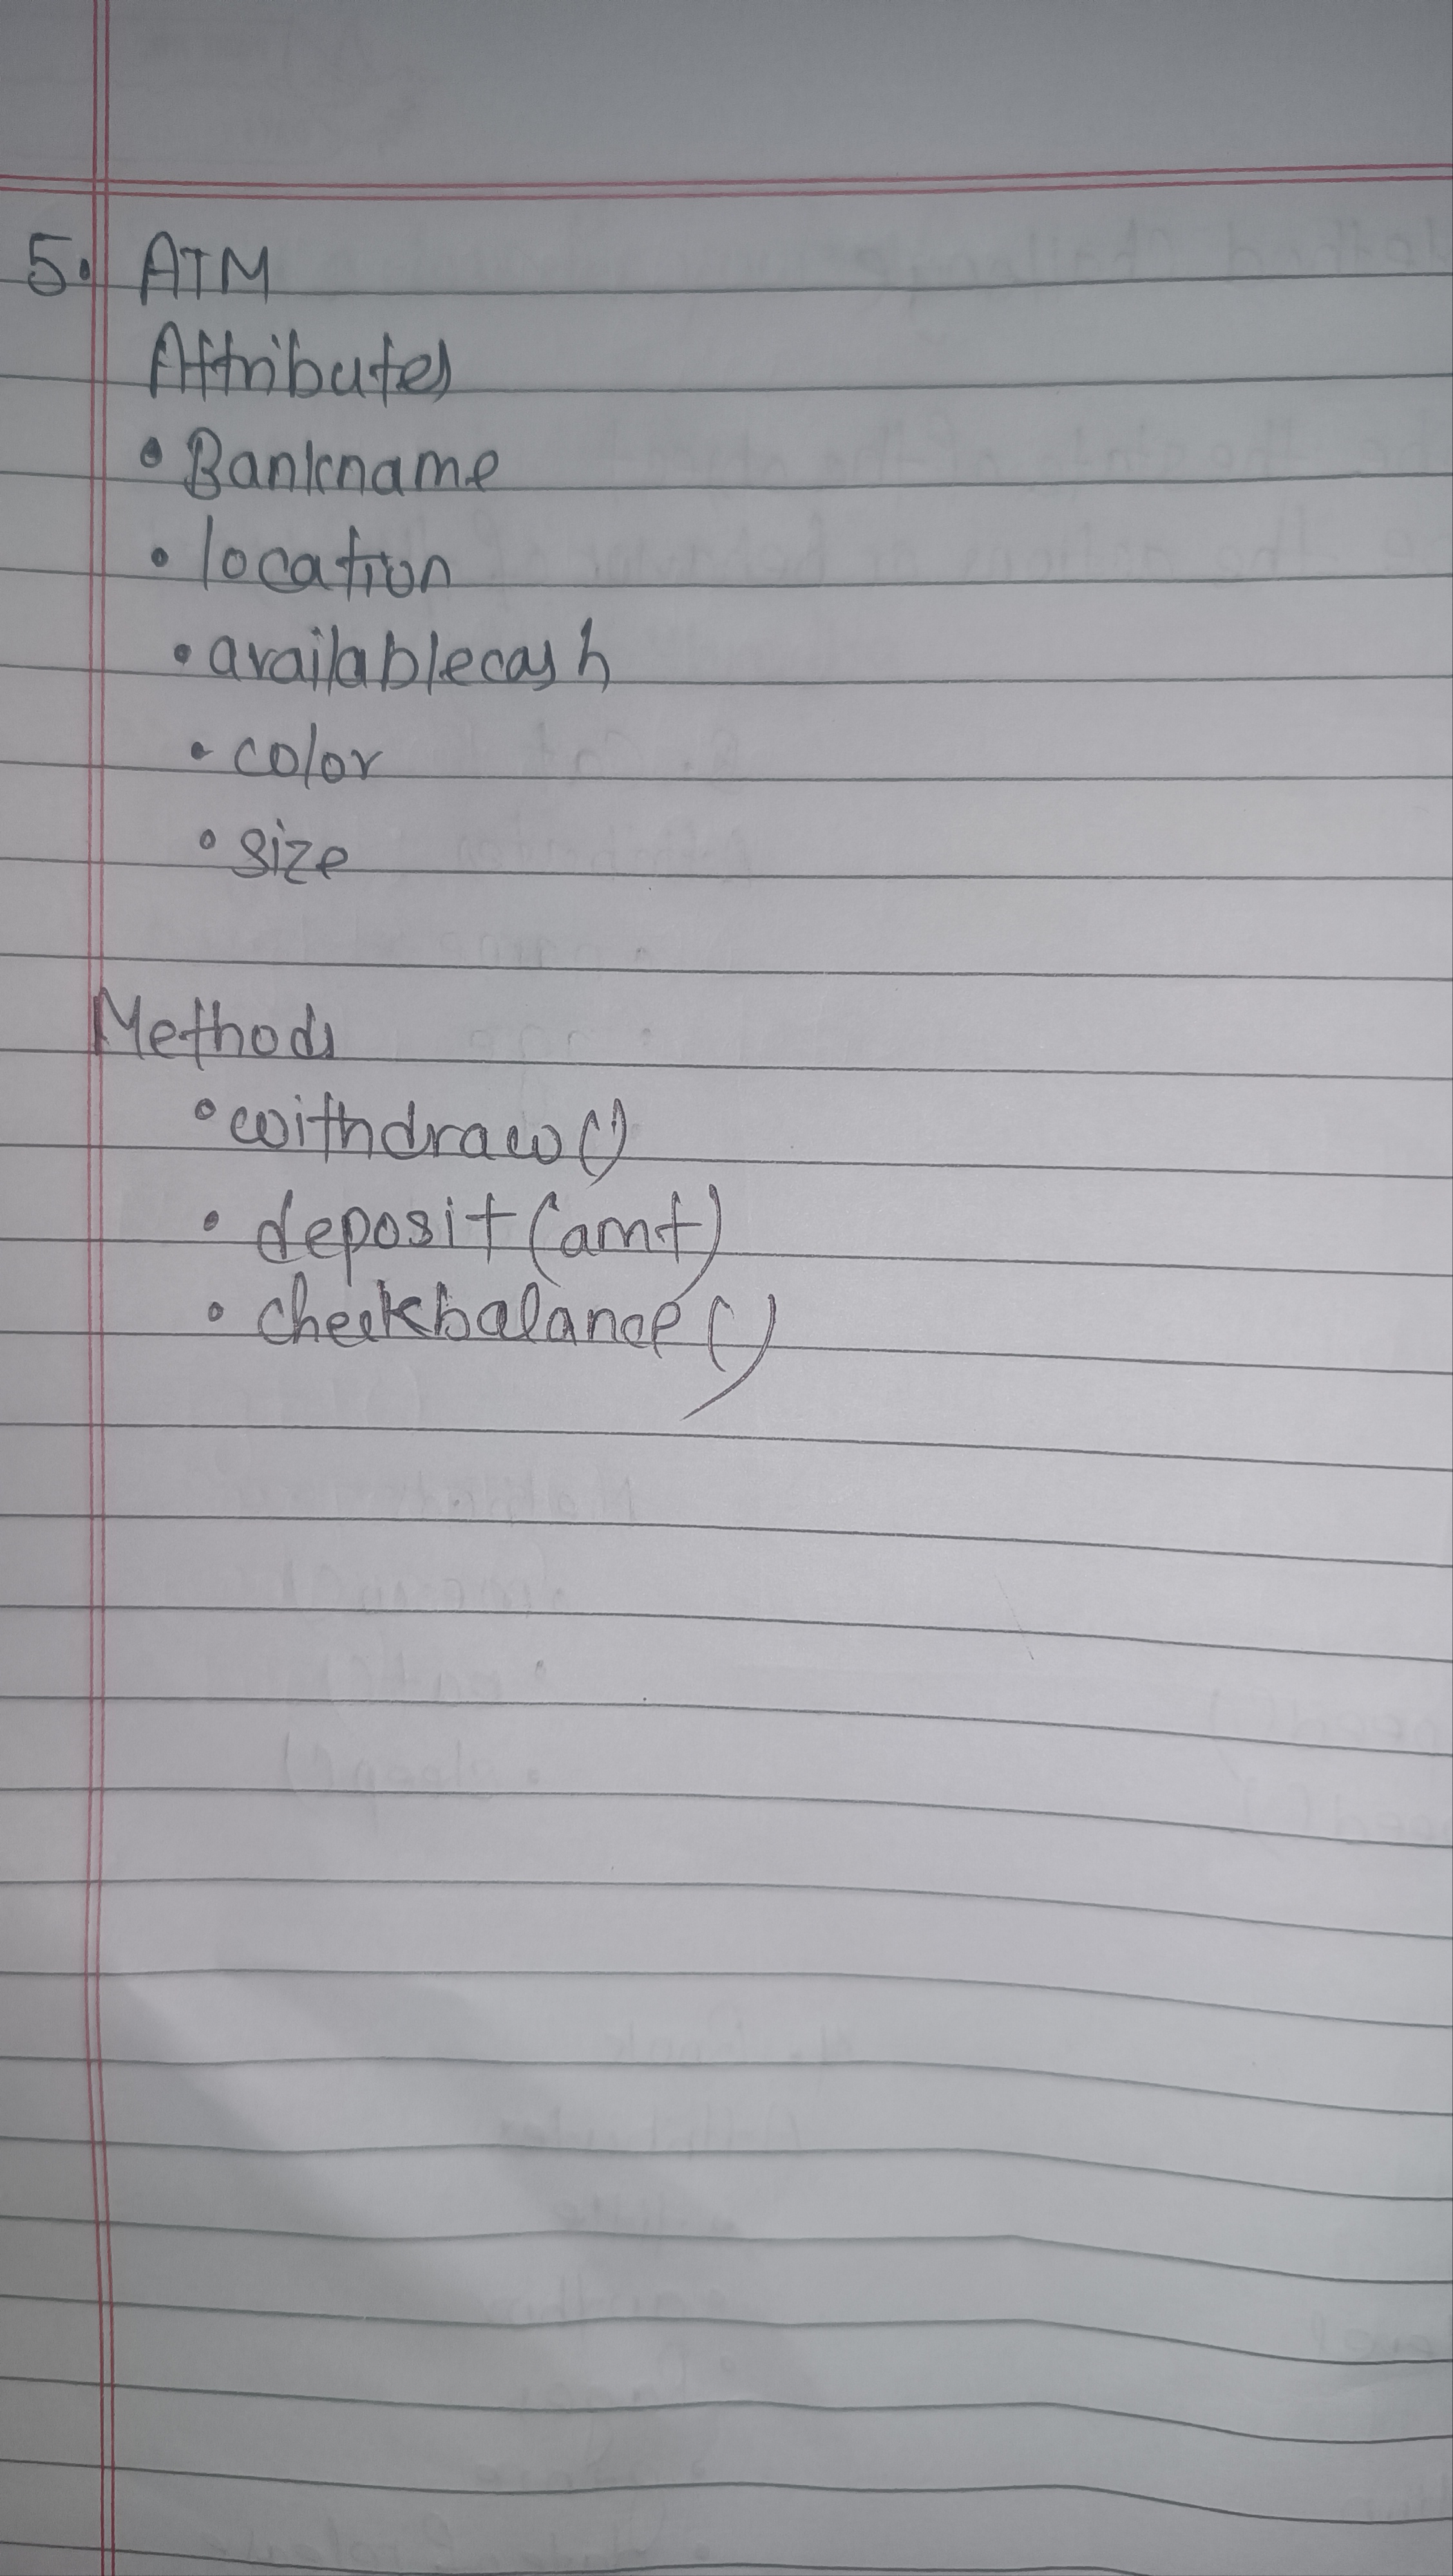 5. ATM
Attributes
• Bankname
• location
• availablecash
• color
• size
Methods
• withdraw()
• deposit(amt)
• checkbalance()